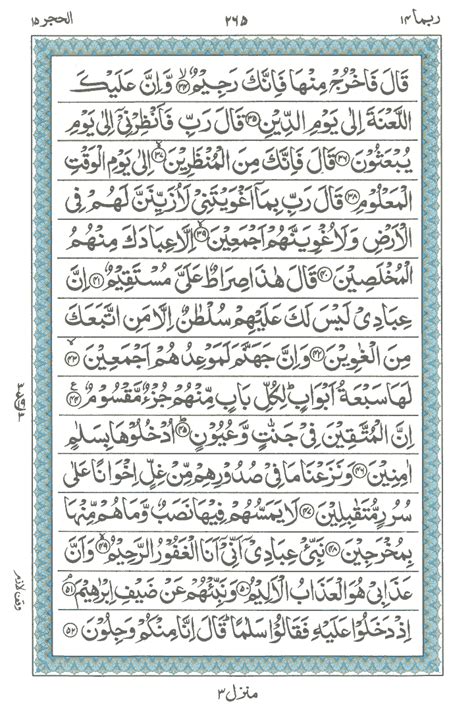 ربما ١٤ ٢٦٥ الحجر ١٥
قَالَ فَاخْرُجْ مِنْهَا فَاِنَّكَ رَجِيْمٌ ۙ﴿٣٤﴾ وَّاِنَّ عَلَيْكَ
اللَّعْنَةَ اِلٰى يَوْمِ الدِّيْنِ ﴿٣٥﴾ قَالَ رَبِّ فَاَنْظِرْنِيْۤ اِلٰى يَوْمِ
يُبْعَثُوْنَ ﴿٣٦﴾ قَالَ فَاِنَّكَ مِنَ الْمُنْظَرِيْنَ ۙ﴿٣٧﴾ اِلٰى يَوْمِ الْوَقْتِ
الْمَعْلُوْمِ ﴿٣٨﴾ قَالَ رَبِّ بِمَاۤ اَغْوَيْتَنِيْ لَاُزَيِّنَنَّ لَهُمْ فِى
الْاَرْضِ وَلَاُغْوِيَنَّهُمْ اَجْمَعِيْنَ ۙ﴿٣٩﴾ اِلَّا عِبَادَكَ مِنْهُمُ
الْمُخْلَصِيْنَ ﴿٤٠﴾ قَالَ هٰذَا صِرَاطٌ عَلَيَّ مُسْتَقِيْمٌ ﴿٤١﴾ اِنَّ
عِبَادِيْ لَيْسَ لَكَ عَلَيْهِمْ سُلْطٰنٌ اِلَّا مَنِ اتَّبَعَكَ
مِنَ الْغٰوِيْنَ ﴿٤٢﴾ وَاِنَّ جَهَنَّمَ لَمَوْعِدُهُمْ اَجْمَعِيْنَ ۙ﴿٤٣﴾
لَهَا سَبْعَةُ اَبْوَابٍ ؕ لِكُلِّ بَابٍ مِّنْهُمْ جُزْءٌ مَّقْسُوْمٌ ﴿٤٤﴾
اِنَّ الْمُتَّقِيْنَ فِيْ جَنّٰتٍ وَّعُيُوْنٍ ؕ﴿٤٥﴾ اُدْخُلُوْهَا بِسَلٰمٍ
اٰمِنِيْنَ ﴿٤٦﴾ وَنَزَعْنَا مَا فِيْ صُدُوْرِهِمْ مِّنْ غِلٍّ اِخْوَانًا عَلٰى
سُرُرٍ مُّتَقٰبِلِيْنَ ﴿٤٧﴾ لَا يَمَسُّهُمْ فِيْهَا نَصَبٌ وَّمَا هُمْ مِّنْهَا
بِمُخْرَجِيْنَ ﴿٤٨﴾ نَبِّئْ عِبَادِيْۤ اَنِّيْۤ اَنَا الْغَفُوْرُ الرَّحِيْمُ ۙ﴿٤٩﴾ وَاَنَّ
عَذَابِيْ هُوَ الْعَذَابُ الْاَلِيْمُ ﴿٥٠﴾ وَنَبِّئْهُمْ عَنْ ضَيْفِ اِبْرٰهِيْمَ ۘ﴿٥١﴾
اِذْ دَخَلُوْا عَلَيْهِ فَقَالُوْا سَلٰمًا ؕ قَالَ اِنَّا مِنْكُمْ وَجِلُوْنَ ﴿٥٢﴾
وقف لازم
منزل ٣